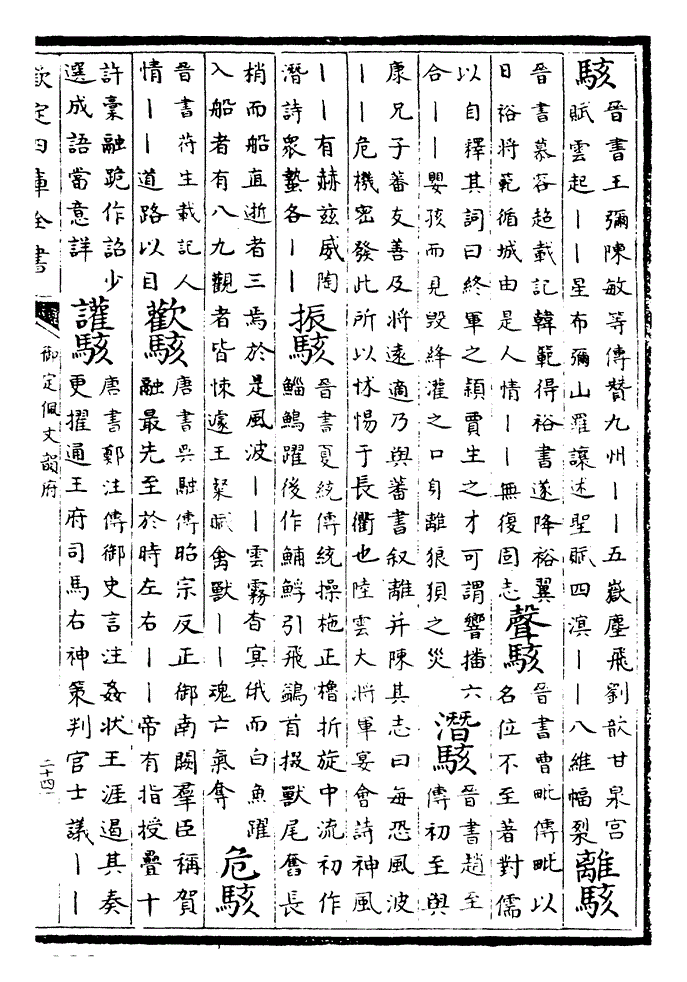 駭
晉書王彌陳敏等傳贊九州丨丨五嶽塵飛劉歆甘泉宮
賦雲起丨丨星布彌山羅讓述聖賦四溟丨丨八維幅裂
離駭
晉書慕容超載記韓範得裕書遂降裕翼
日裕將範循城由是人情丨丨無復固志
聲駭
晉書曹毗傳毗以
名位不至著對儒
以自釋其詞曰終軍之穎賈生之才可謂響播六
合丨丨嬰孩而見毀絳灌之口身離狼狽之災
潛駭
晉書趙至
傳初至與
康兄子蕃友善及將遠適乃與蕃書叙離并陳其志曰每恐風波
丨丨危機密發此所以怵惕于長衢也陸雲大將軍宴會詩神風
丨丨有赫茲威陶
潛詩衆蟄各丨丨
振駭
晉書夏統傳統操柂正櫓折旋中流初作
鯔鷠躍後作鯆䱐引飛鷁首掇獸尾奮長
梢而船直逝者三焉於是風波丨丨雲霧杳冥俄而白魚躍
入船者有八九觀者皆悚遽王粲賦禽獸丨丨魂亡氣奪
危駭
晉書苻生載記人
情丨丨道路以目
歡駭
唐書吳融傳昭宗反正御南闕羣臣稱賀
融最先至於時左右丨丨帝有指授疊十
許稾融跪作詔少
選成語當意詳
讙駭
唐書鄭注傳御史言注姦狀王涯遏其奏
更擢通王府司馬右神策判官士議丨丨
欽定四庫全書
御定佩文韻府
二十四